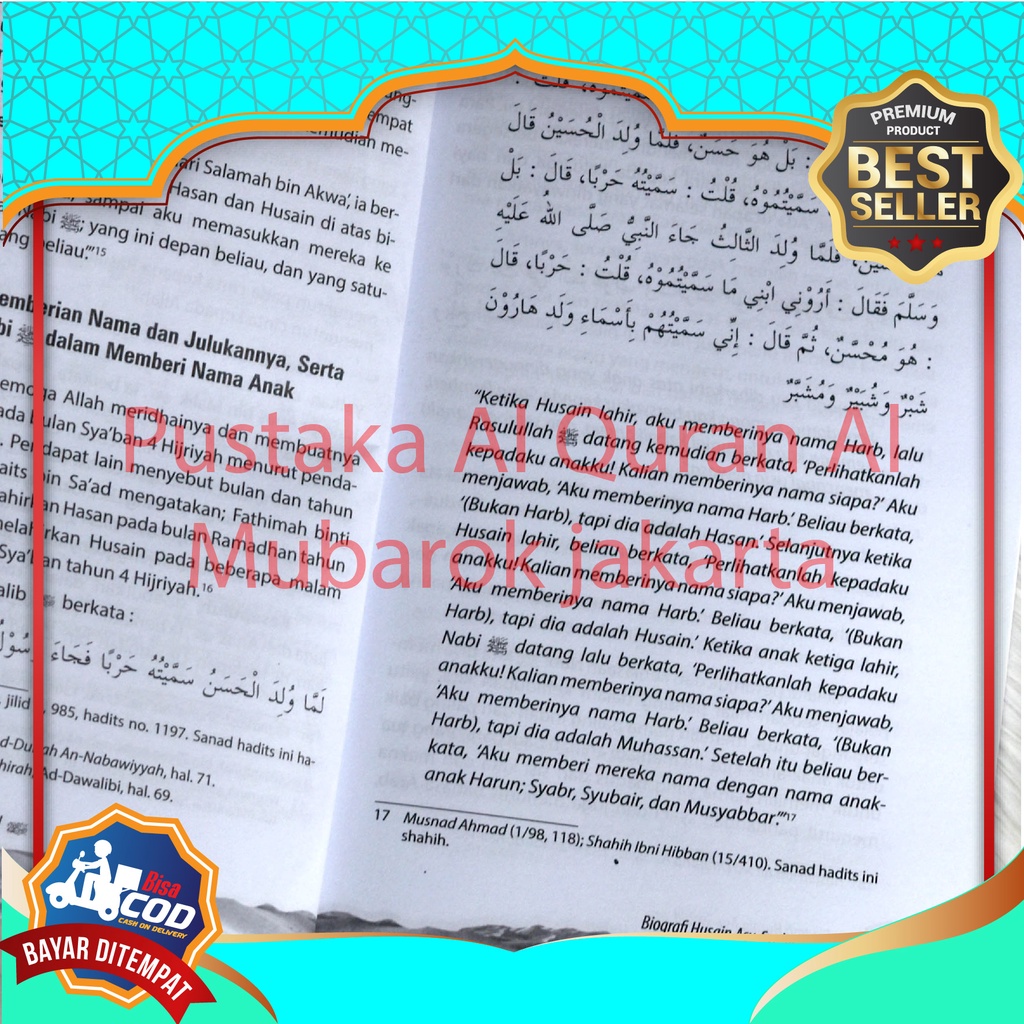 PREMIUM
PRODUCT
BEST
SELLER
ari Salamah bin Akwa', ia ber-
Hasan dan Husain di atas bi-
sampai aku memasukkan mereka ke
Nabi ﷺ; yang ini depan beliau, dan yang satu-
beliau.'"15
emberian Nama dan Julukannya, Serta
bi ﷺ dalam Memberi Nama Anak
emoga Allah meridhainya dan membuatnya
ada bulan Sya'ban 4 Hijriyah menurut penda-
. Pendapat lain menyebut bulan dan tahun
aits bin Sa'ad mengatakan; Fathimah binti
ahirkan Hasan pada bulan Ramadhan tahun
melahirkan Husain pada beberapa malam
Sya'ban tahun 4 Hijriyah.16
alib berkata :
لَمَّا وُلِدَ الْحَسَنُ سَمَّيْتُهُ حَرْبًا فَجَاءَ رَسُوْلُ
jilid 985, hadits no. 1197. Sanad hadits ini ha-
d-Durrah An-Nabawiyyah, hal. 71.
hirah, Ad-Dawalibi, hal. 69.
سَمَّيْتُمُوْهُ، قُلْتُ :
: بَلْ هُوَ حَسَنٌ، فَلَمَّا وُلِدَ الْحُسَيْنُ قَالَ
سَمَّيْتُمُوْهُ، قُلْتُ : سَمَّيْتُهُ حَرْبًا، قَالَ : بَلْ
فَلَمَّا وُلِدَ الثَّالِثُ جَاءَ النَّبِيُّ صَلَّى اللهُ عَلَيْهِ
وَسَلَّمَ فَقَالَ : أَرُوْنِي ابْنِي مَا سَمَّيْتُمُوْهُ، قُلْتُ : حَرْبًا، قَالَ
: هُوَ مُحْسَّنٌ، ثُمَّ قَالَ : إِنِّي سَمَّيْتُهُمْ بِأَسْمَاءِ وَلَدِ هَارُوْنَ
شَبْرٌ وَشُبَيْرٌ وَمُشَبَّرٌ
"Ketika Husain lahir, aku memberinya nama Harb, lalu
Rasulullah ﷺ datang kemudian berkata, 'Perlihatkanlah
kepadaku anakku! Kalian memberinya nama siapa?' Aku
menjawab, 'Aku memberinya nama Harb.' Beliau berkata,
'(Bukan Harb), tapi dia adalah Hasan.' Selanjutnya ketika
Husain lahir, beliau berkata, 'Perlihatkanlah kepadaku
anakku! Kalian memberinya nama siapa?' Aku menjawab,
'Aku memberinya nama Harb.' Beliau berkata, '(Bukan
Harb), tapi dia adalah Husain.' Ketika anak ketiga lahir,
Nabi ﷺ datang lalu berkata, 'Perlihatkanlah kepadaku
anakku! Kalian memberinya nama siapa?' Aku menjawab,
'Aku memberinya nama Harb.' Beliau berkata, '(Bukan
Harb), tapi dia adalah Muhassan.' Setelah itu beliau ber-
kata, 'Aku memberi mereka nama dengan nama anak-
anak Harun; Syabr, Syubair, dan Musyabbar.'"17
17 Musnad Ahmad (1/98, 118); Shahih Ibni Hibban (15/410). Sanad hadits ini
shahih.
Biografi Husain
Pustaka Al Quran Al
Mubarok jakarta
Bisa
COD
CASH ON DELIVERY
BAYAR DITEMPAT